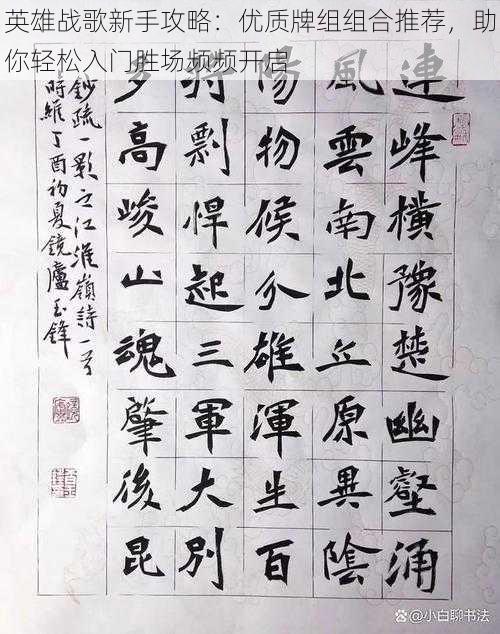 英雄战歌新手攻略：优质牌组组合推荐，助
你轻松入门胜场频频开启
連峰橫豫楚幽壑涌
風雲南北丘原異陰
陽物候分雄渾生百
將剽悍起三軍大別
多高峻山魂肇後昆
鈔疏一影之江淮嶺詩一首
時維丁酉初夏鏡廬玉鋒
@小白聊书法